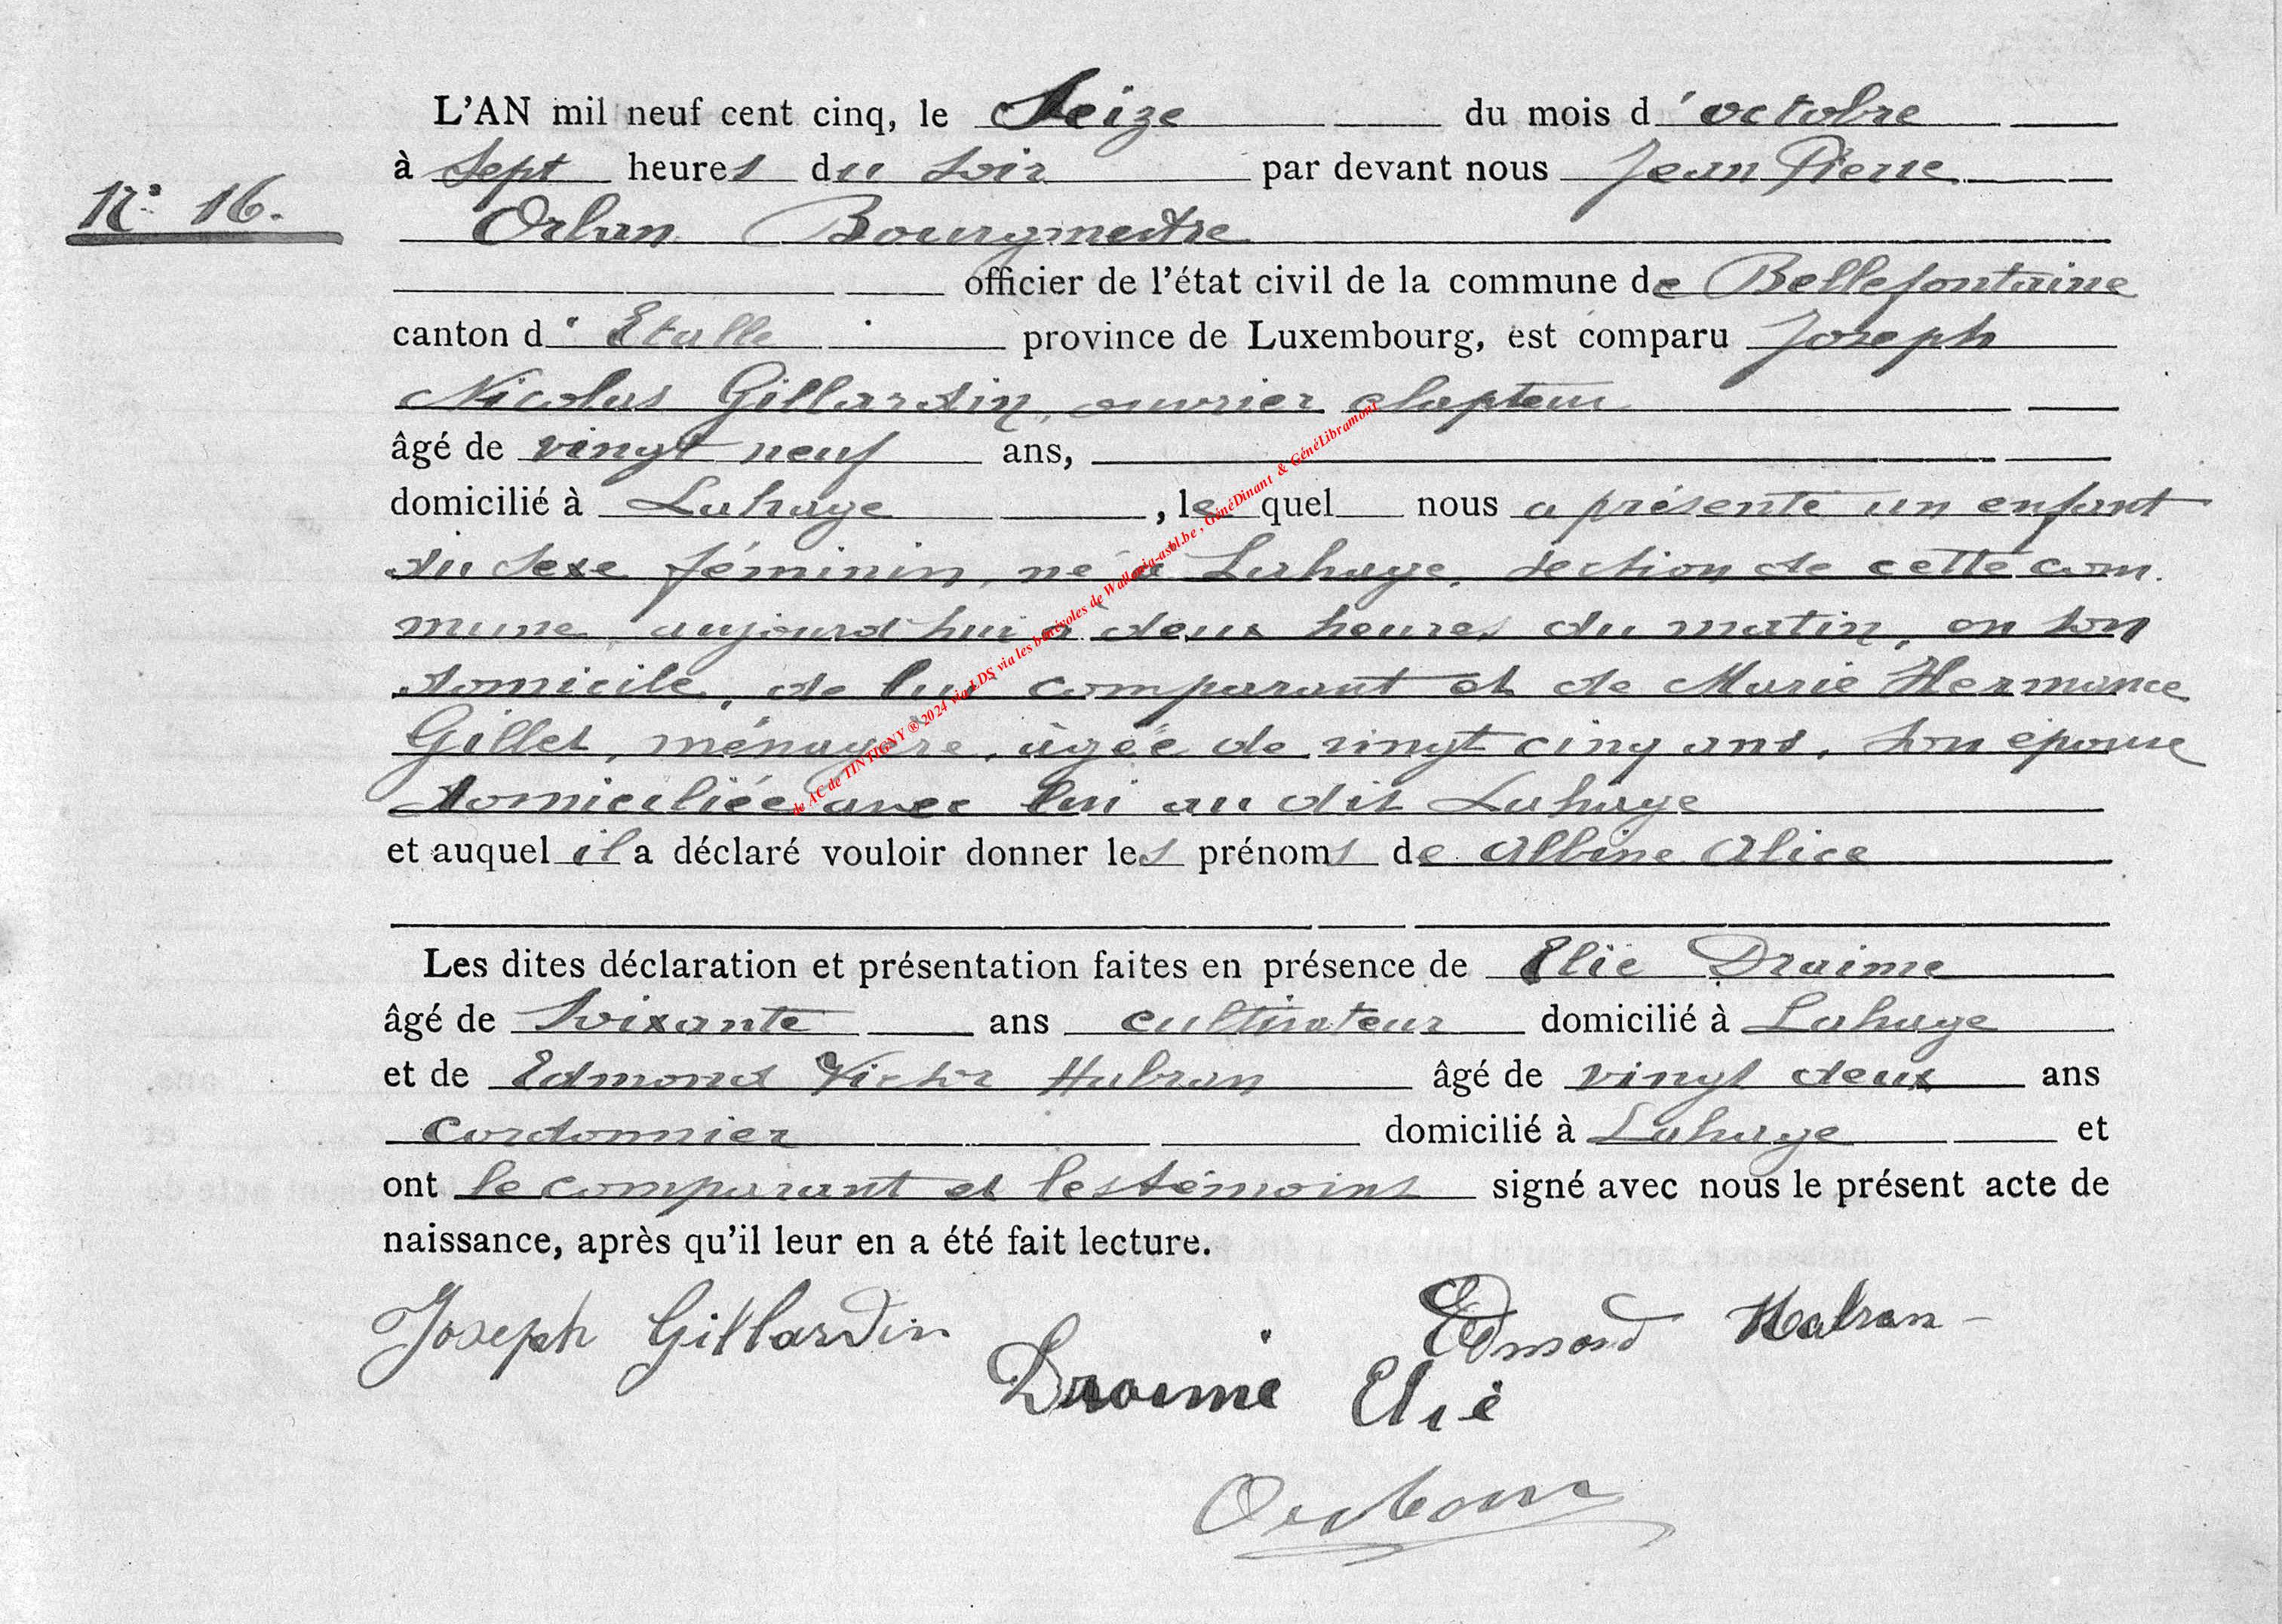 L'AN mil neuf cent cinq, le Seize du mois d'octobre
à Sept heures du soir par devant nous Jean Pierre
N° 16.
Orban Bourgmestre
officier de l'état civil de la commune de Bellefontaine
canton d'Etalle province de Luxembourg, est comparu Joseph
Nicolas Gillardin, ouvrier
âgé de vingt neuf ans,
domicilié à Lahage, lequel nous a présenté un enfant
du sexe féminin, né à Lahage, section de cette com
mune, aujourd'hui à deux heures du matin, en son
domicile, de lui comparant et de Marie Hermance
Gillet, ménagère, âgée de vingt cinq ans, son épouse
domiciliée avec lui au dit Lahage
et auquel il a déclaré vouloir donner les prénoms de Albine Alice
Les dites déclaration et présentation faites en présence de Elie Draime
âgé de Soixante ans cultivateur domicilié à Lahage
et de Edmond Victor Habran âgé de vingt deux ans
cordonnier domicilié à Lahage et
ont le comparant et les témoins signé avec nous le présent acte de
naissance, après qu'il leur en a été fait lecture.
Joseph Gillardin
Edmond Habran
Draime Elie
Orban
de AC de TINTIGNY ® 2024 via LDS via les bénévoles de Wallonia-asbl.be, GénéDinant & GénéLibramont